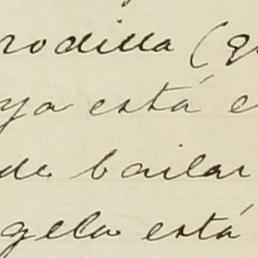 rodilla (qu
ya está e
de bailar
gela está